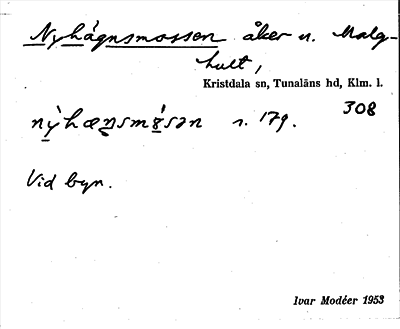 Nyhägnsmossen åker n. Malg-
hult,
Kristdala sn, Tunaläns hd, Klm. l.
308
nỳhæŋsmósən s. 179.
Vid byn.
Ivar Modéer 1953